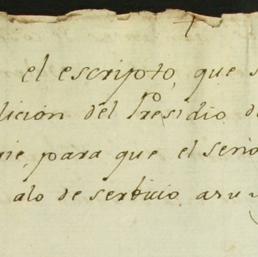 el escripto, que s
lición del Presidio d
rie, para que el seño
alo de serbicio asu